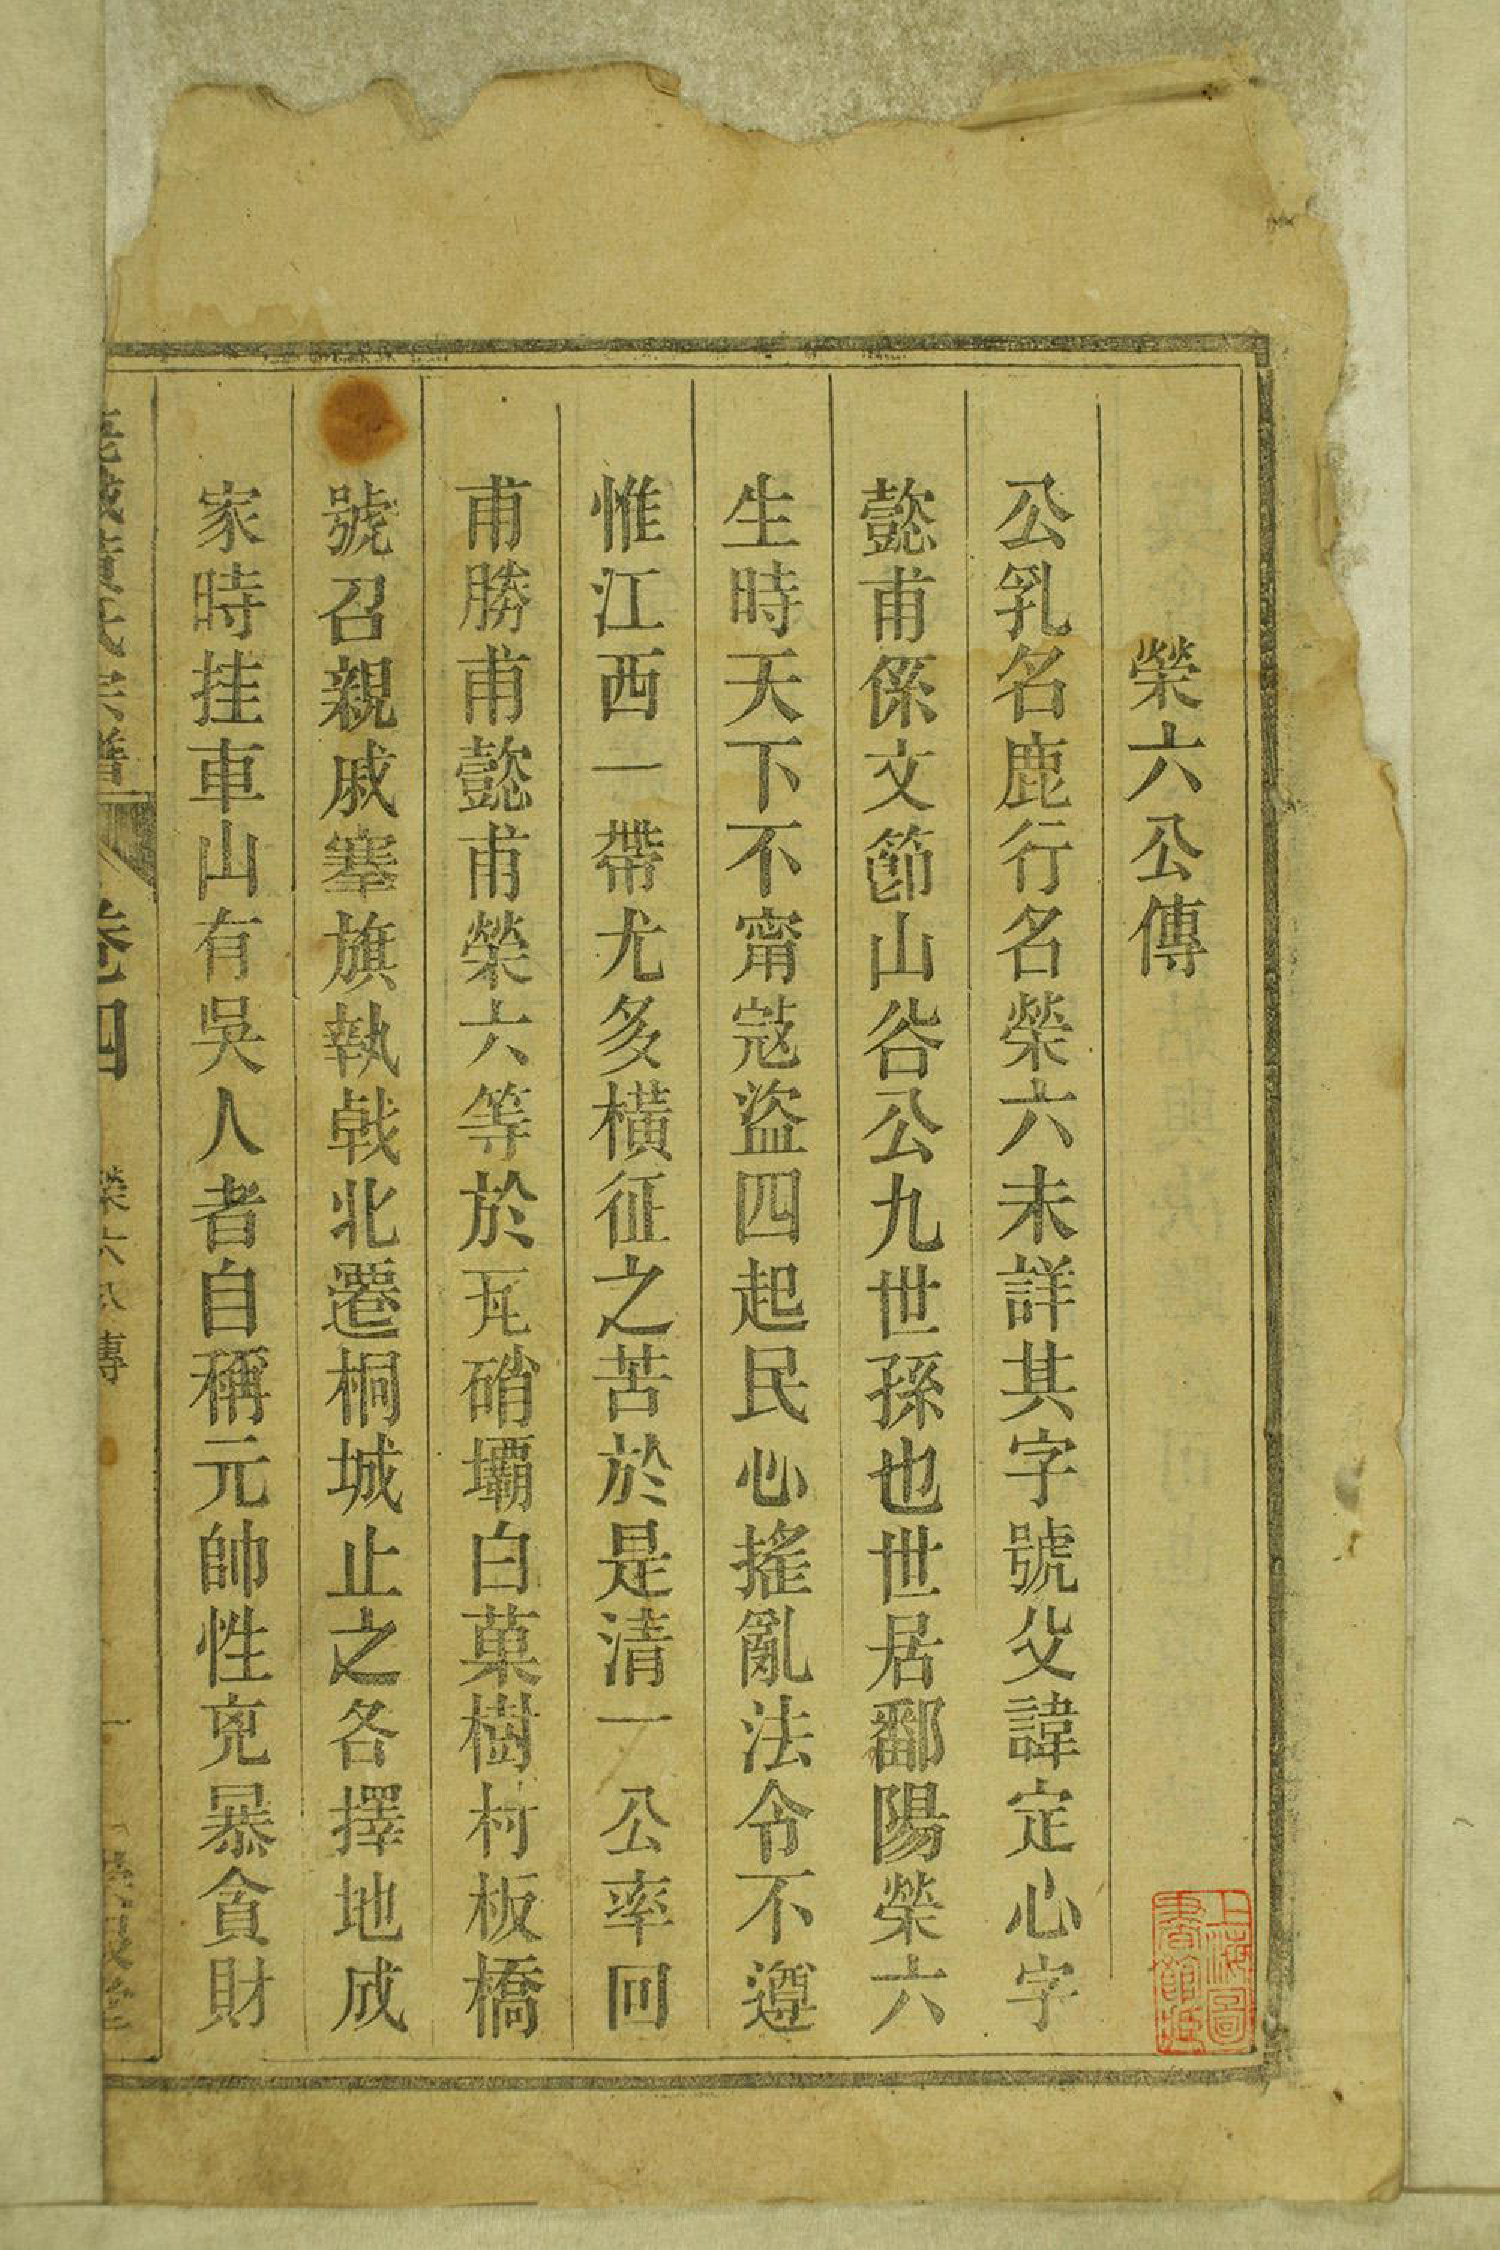 榮六公傳
公乳名鹿行名榮六未詳其字號父諱定心字
懿甫係文節山谷公九世孫也世居鄱陽榮六
生時天下不甯宼盜四起民心搖亂法令不遵
惟江西一帶尤多橫征之苦於是清一公率回
甫勝甫懿甫榮六等於瓦硝壩白菓樹村板橋
號召親戚搴旗執戟北遷桐城止之各擇地成
家時挂車山有吳人者自稱元帥性兇暴貪財
氏宗譜
卷四
榮六公傳
一
上海圖書館藏